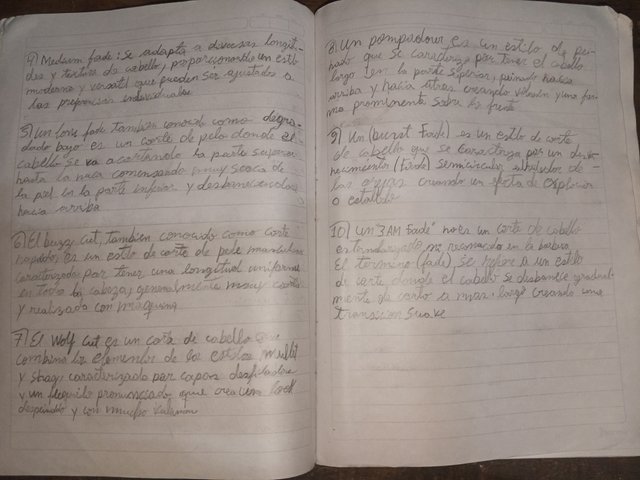 4) Medium fade: se adapta a diversas longit-
des y textura de cabello, proporcionando un estilo
moderno y versatil que pueden ser ajustados a
las preferencias individuales
5) Un low fade tambien conocido como degra-
dado bajo es un corte de pelo donde el
cabello se va acortando la parte superior
hasta la nuca comensando muy cerca de
la piel en la parte inferior y desbaneciendolo
hacia arriba
6) El buzz cut, tambien conocido como corte
rapado es un estilo de corte de pelo masculino
caracterizado por tener una longitud uniforme
en toda la cabeza, generalmente muy corta
y realizada con maquina
7) El Wolf Cut es un corte de cabello que
combina los elementos de los estilos mullet
y shag caracterizado por capas desfiladas
y un flequillo pronunciado que crea un look
despeinado y con mucho
8) Un pompadour es un estilo de pei-
nado que se caracteriza por tener el cabello
largo en la parte superior, peinado hacia
arriba y hacia atras creando volumen y una for-
ma prominente sobre la frente
9) Un (burst Fade) es un estilo de corte
de cabello que se caracteriza por un desba-
necimiento (Fade) semicircular alrededor de
las orejas creando un efecto de explocion
o estallido
10) un "3AM Fade" no es un corte de cabello
estandarizado ni reconocido en la
El termino (fade) se refiere a un estilo
de corte donde el cabello se disbanece gradual-
mente de corto a mas largo creando una
transicion suave